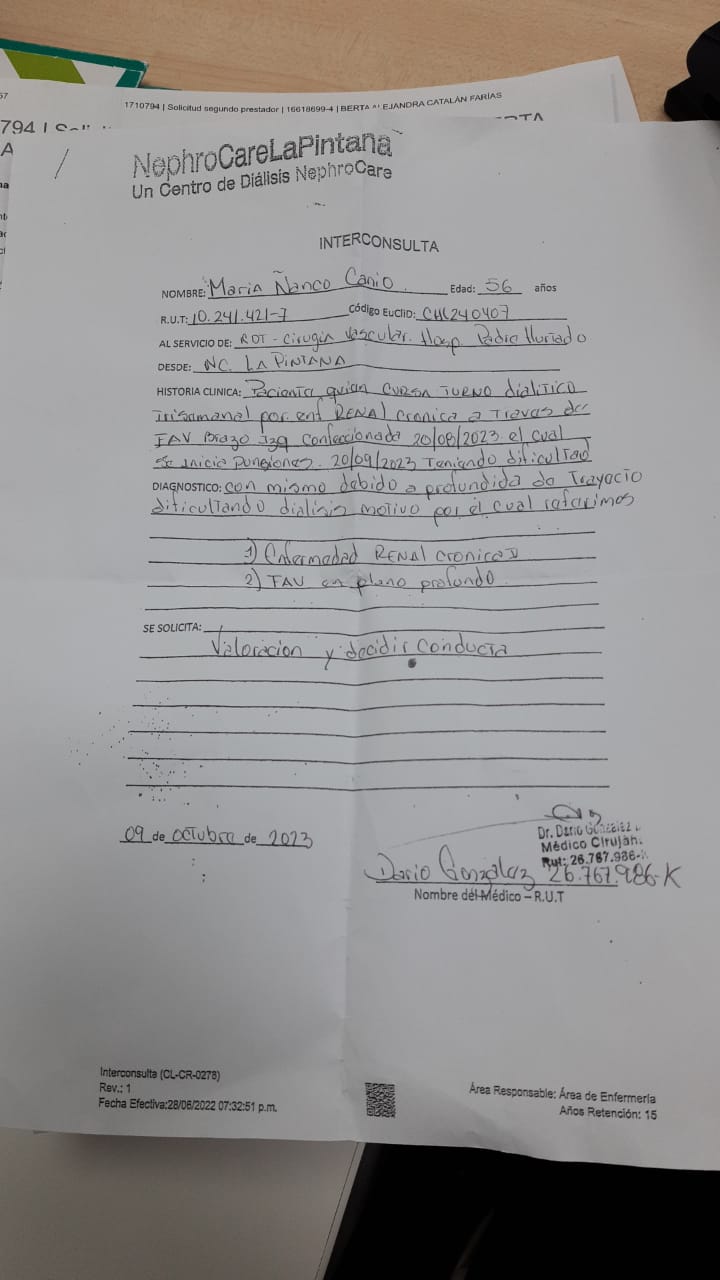 57
1710794 | Solicitud segundo prestador | 16618699-4 | BERTA ALEJANDRA CATALÁN FARÍAS
794 |
A
NephroCareLaPintana
Un Centro de Diálisis NephroCare
INTERCONSULTA
NOMBRE: Maria Ñanco Canio Edad: 56 años
R.U.T: 10.241.421-7 Código EuCliD: CHL240407
AL SERVICIO DE: Cirugia Vascular. Hosp. Padre Hurtado
DESDE: NC. LA PINTANA
HISTORIA CLINICA: Paciente quien CURSA TURNO dialitico
Trisemanal por enf RENAL Cronica a Traves de
FAV Brazo Izq Confeccionada 20/08/2023 el cual
se inicia punsiones. 20/09/2023 Teniendo dificultad
DIAGNOSTICO: con mismo debido a profundida de Trayecto
dificultando dialisis motivo por el cual referimos
1) Enfermedad RENAL Cronica
2) FAV en plano profundo
SE SOLICITA:
Valoracion y decidir Conducta
09 de octubre de 2023
Dr. Dario González
Médico Cirujan
Rut: 26.767.986-
Dario Gonzalez 26.767.986-K
Nombre del Médico – R.U.T
Interconsulta (CL-CR-0278)
Rev.: 1
Fecha Efectiva:28/06/2022 07:32:51 p.m.
Área Responsable: Área de Enfermería
Años Retención: 15